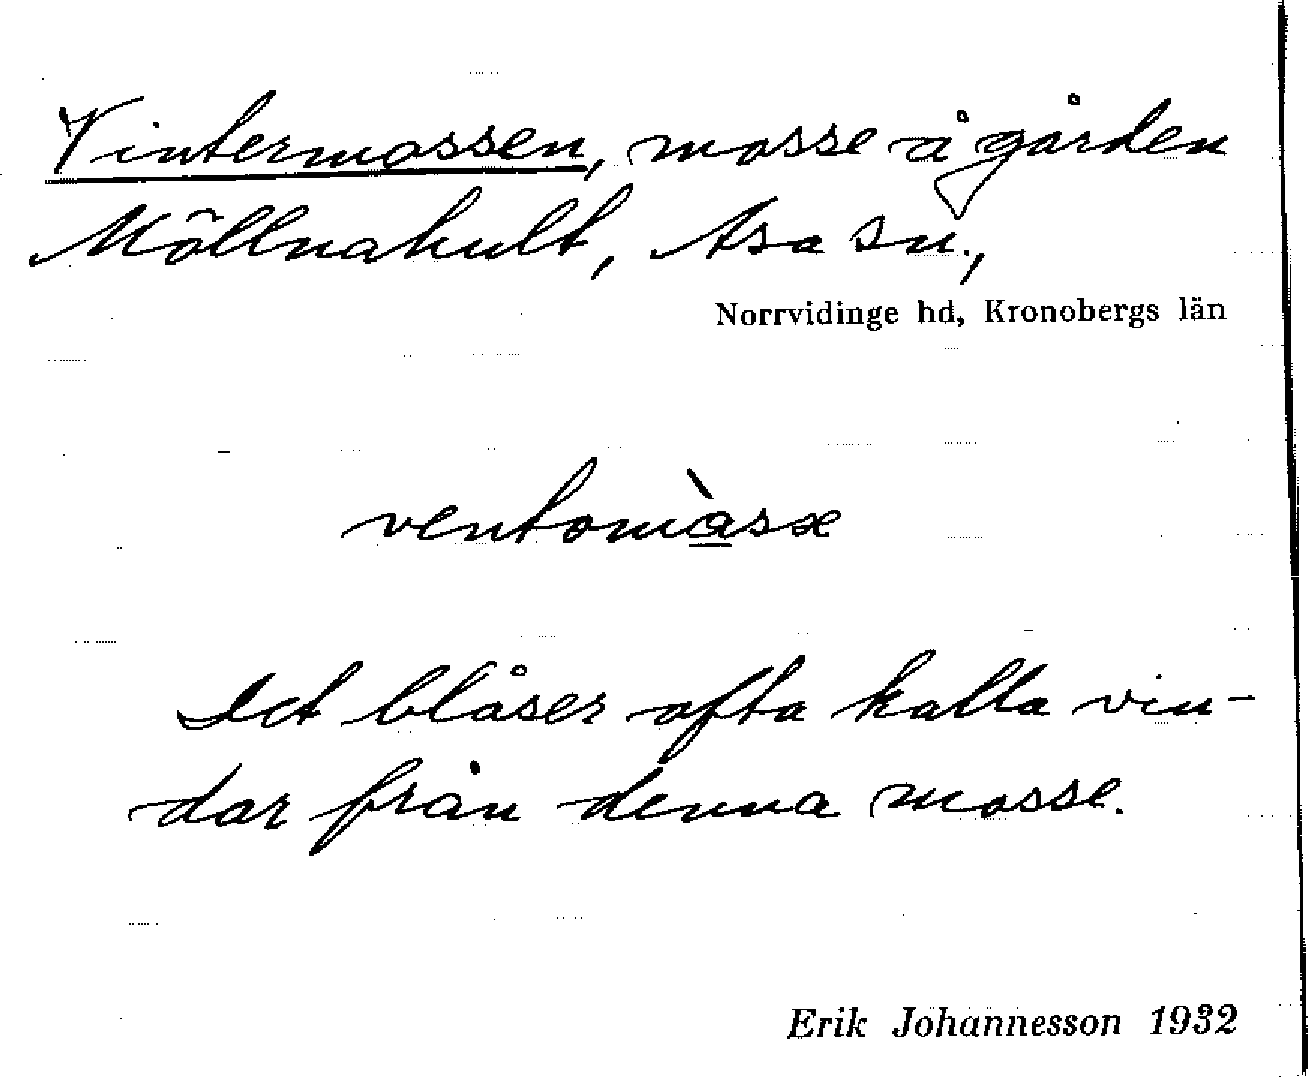 Vintermossen, mosse å gården
Möllnahult, Asa sn.,
Norrvidinge hd, Kronobergs län
ventomàsæ
Det blåser ofta kalla vin-
dar från denna mosse.
Erik Johannesson 1932